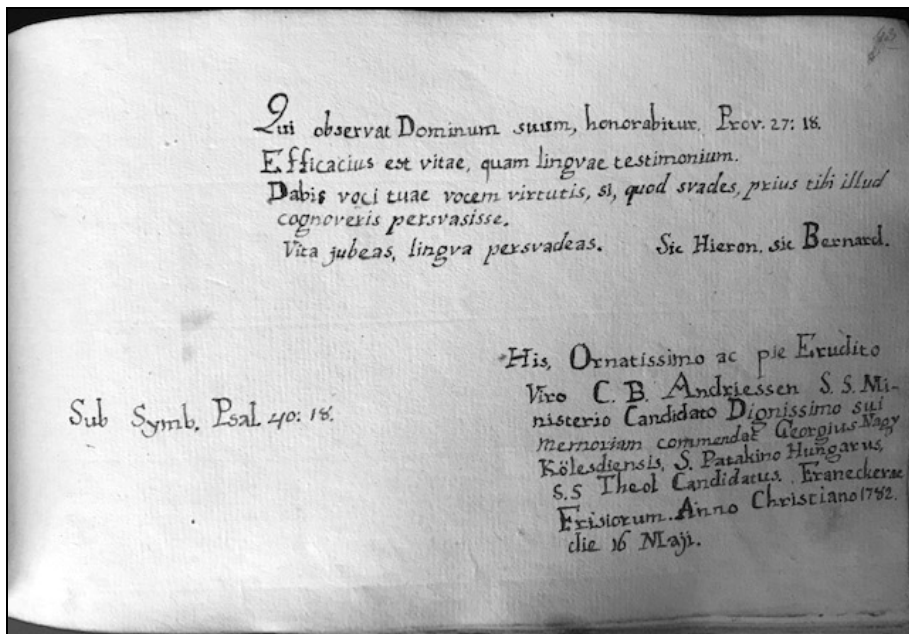 Qui observat Dominum suum, honorabitur. Prov. 27: 18.
Efficacius est vitae, quam lingvae testimonium.
Dabis voci tuae vocem virtutis, si, quod svades, prius tibi illud
cognoveris persvasisse.
Vita jubeas, lingva persvadeas. Sic Hieron. sic Bernard.
His, Ornatissimo ac pie Erudito
Viro C. B. Andriessen S. S. Mi-
nisterio Candidato Dignissimo sui
memoriam commendat Georgius Nagy
Kölesdiensis, S. Patakino Hungarus,
S.S Theol Candidatus. Franeckerae
Frisiorum. Anno Christiano 1782.
die 16 Maji.
Sub Symb. Psal. 40: 18.